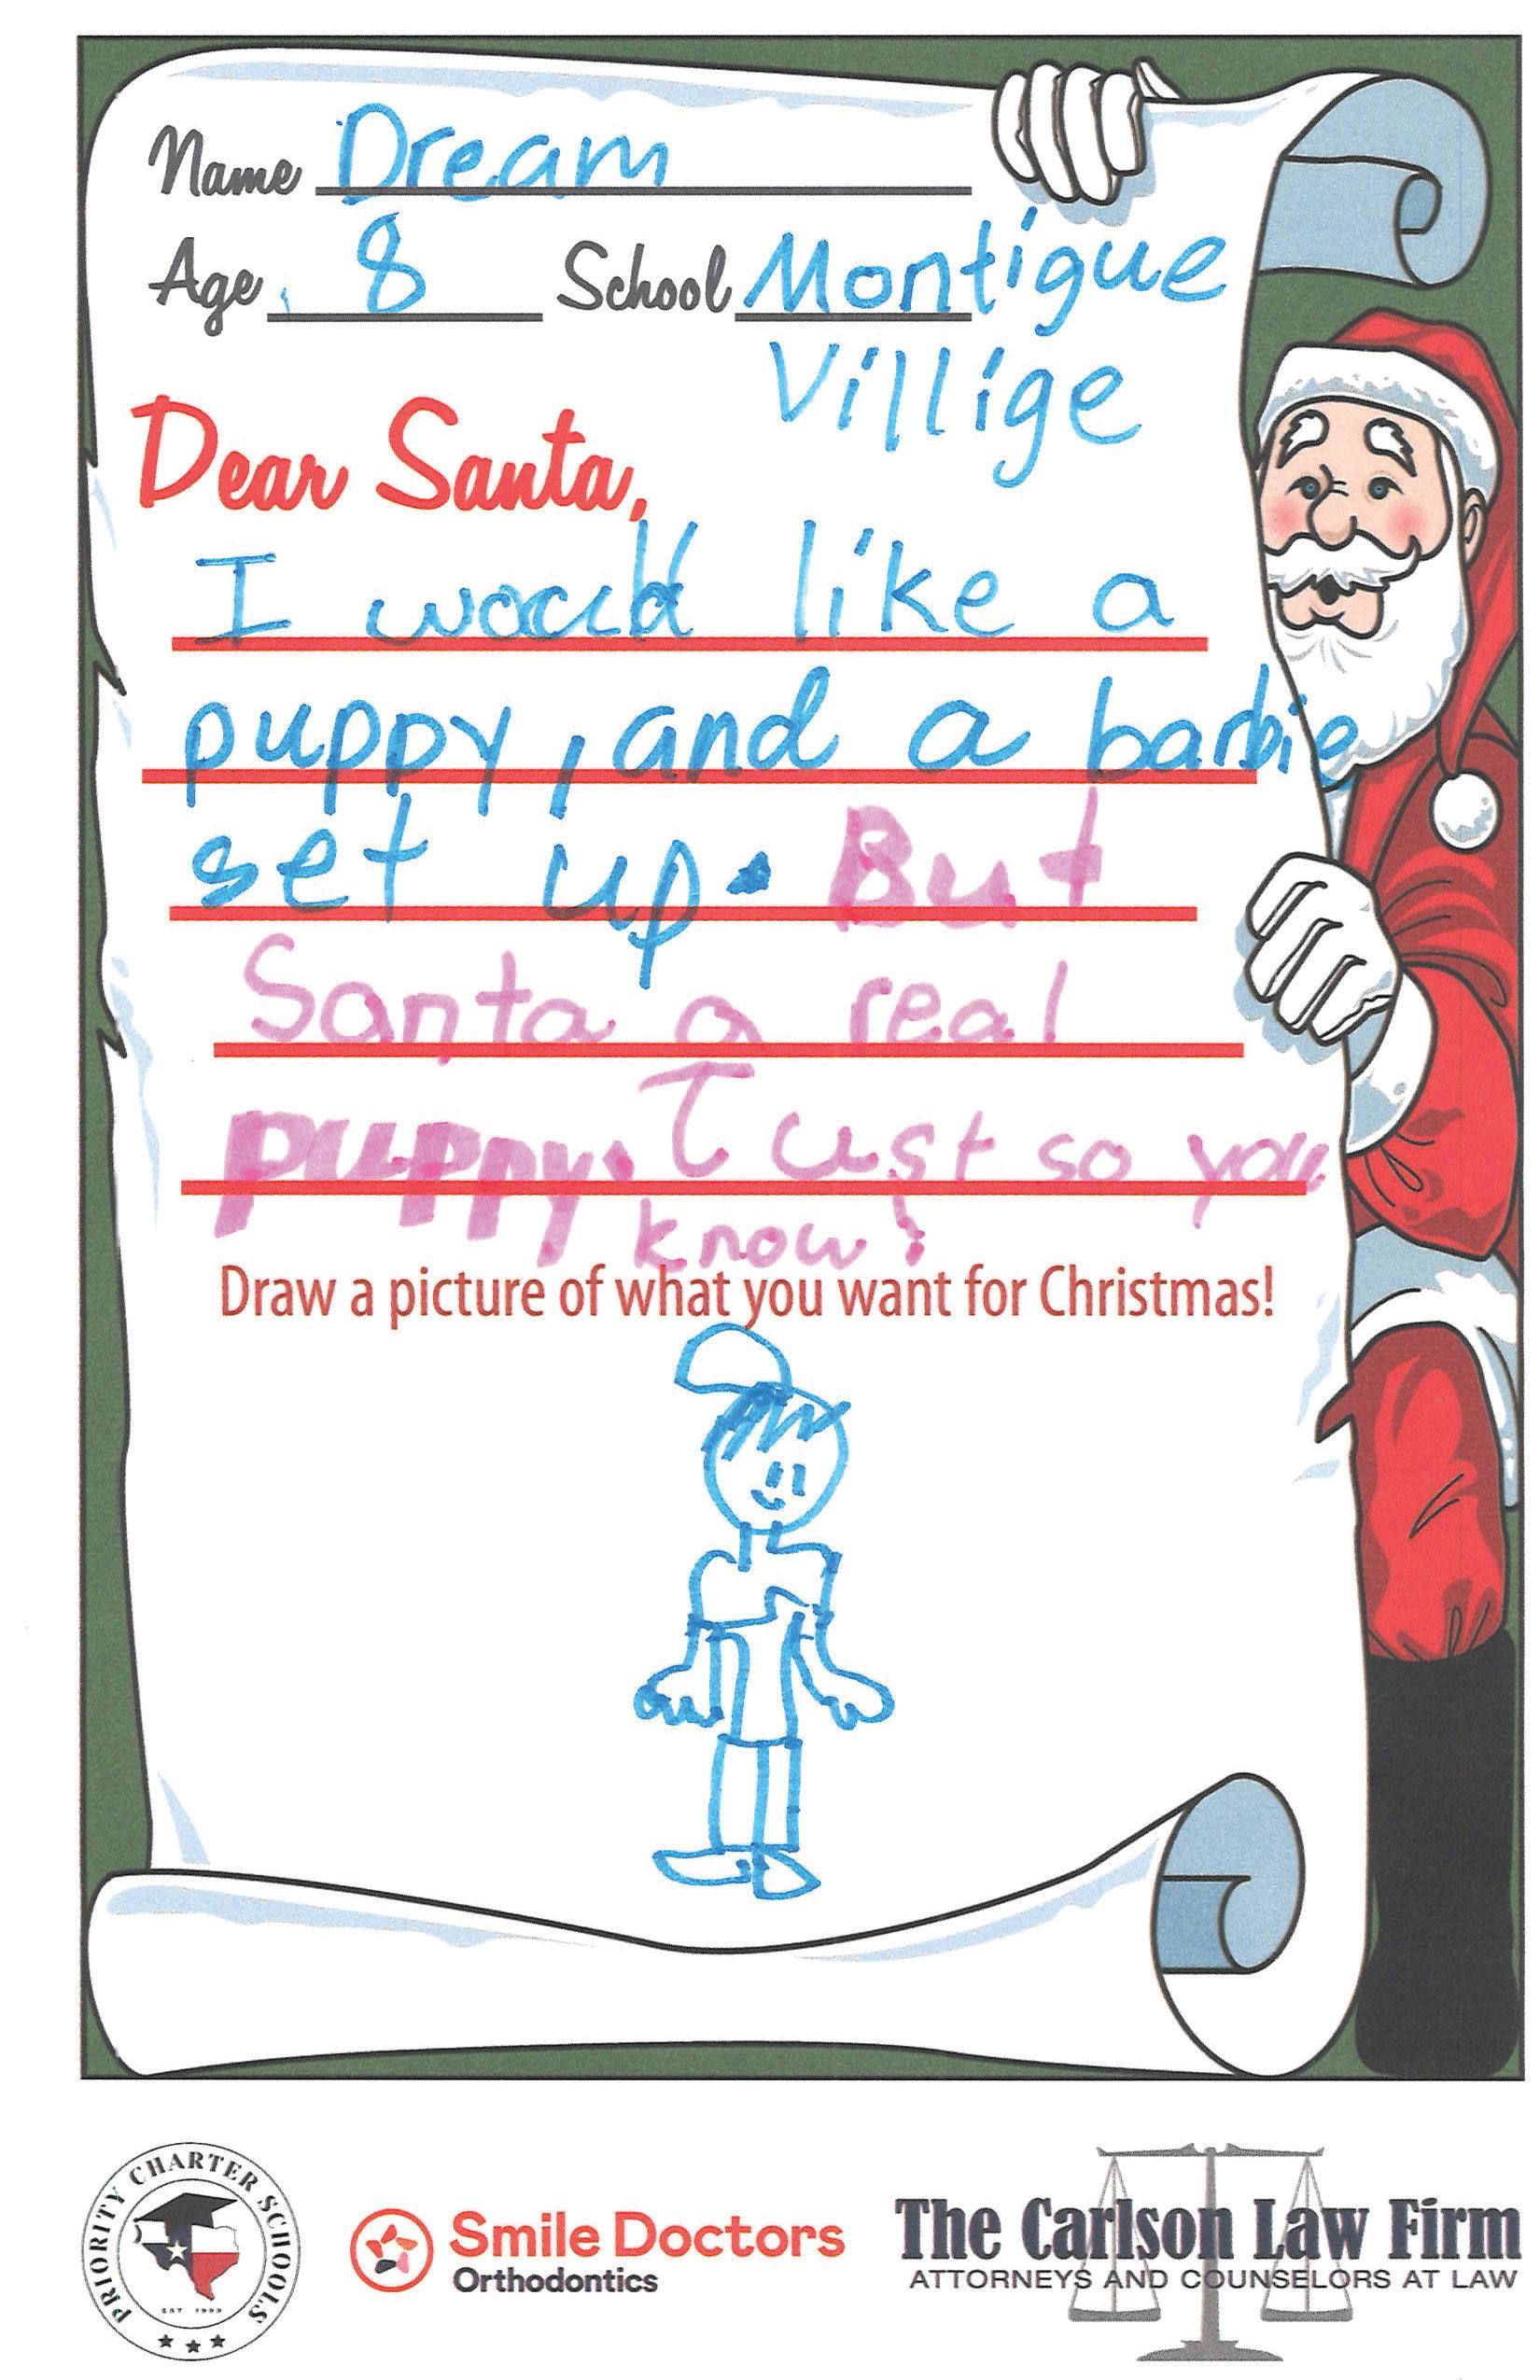 Name Dream
Age 8 School Montigue
Villige
Dear Santa,
I would like a
puppy, and a barbie
set up. But
Santa a real
puppy. Just so you
know!
Draw a picture of what you want for Christmas!
PRIORITY CHARTER SCHOOLS
EST 1999
Smile Doctors
Orthodontics
The Carlson Law Firm
ATTORNEYS AND COUNSELORS AT LAW